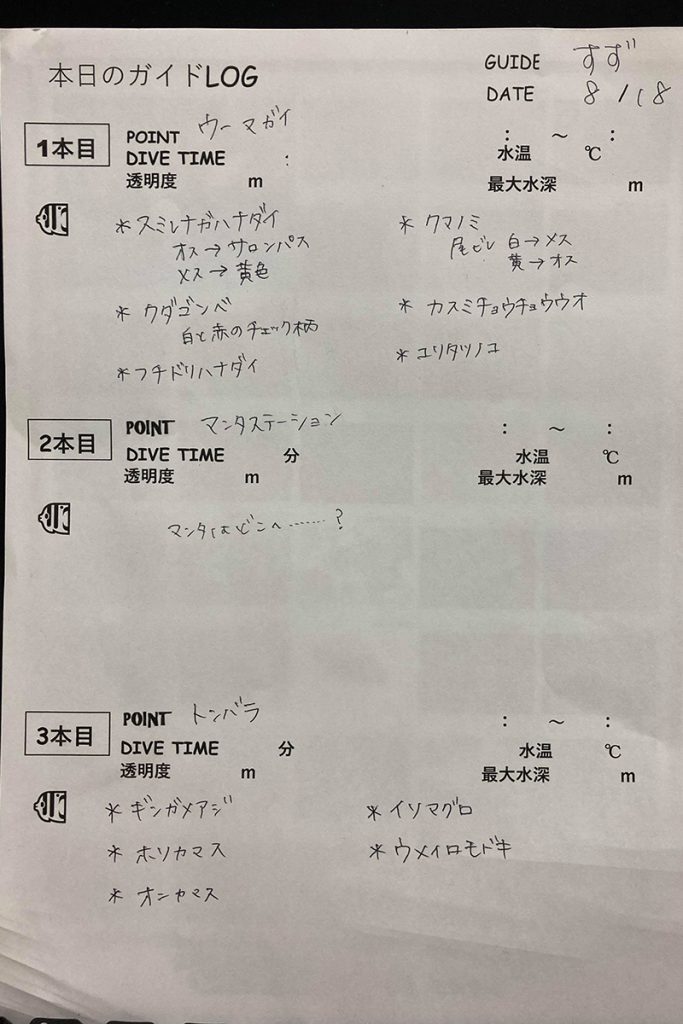 本日のガイドLOG
GUIDE すず
DATE 8/18
1本目
POINT ウーマガイ
DIVE TIME :
: ～ :
水温 ℃
透明度 m
最大水深 m
* スミレナガハナダイ
オス→サロンパス
メス→黄色
* クダゴンベ
白と赤のチェック柄
* フチドリハナダイ
* クマノミ
尾ビレ 白→メス
黄→オス
* カスミチョウチョウウオ
* ユリタツノコ
2本目
POINT マンタステーション
DIVE TIME 分
: ～ :
水温 ℃
透明度 m
最大水深 m
マンタはどこへ……?
3本目
POINT トンバラ
DIVE TIME 分
: ～ :
水温 ℃
透明度 m
最大水深 m
* ギンガメアジ
* ホソカマス
* オニカマス
* イソマグロ
* ウメイロモドキ